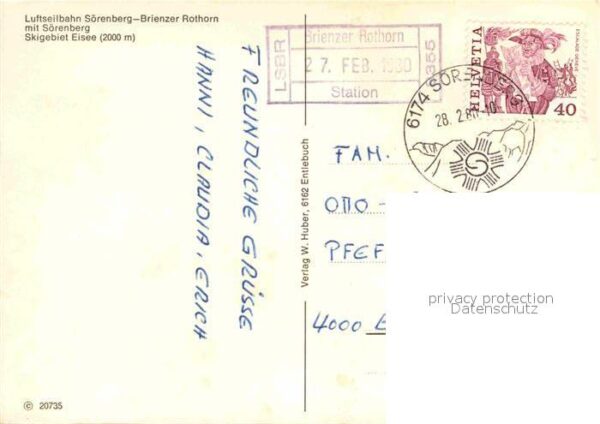 Luftseilbahn Sörenberg–Brienzer Rothorn
mit Sörenberg
Skigebiet Eisee (2000 m)
LSBR
Brienzer Rothorn
27. FEB. 1980
Station
355
HELVETIA
40
6174 SÖRENBERG
28. 2. 80
FREUNDLICHE GRÜSSE
HANNI, CLAUDIA, ERICH
Verlag W. Huber, 6162 Entlebuch
FAM.
OTTO -
PFEF
4000
privacy protection
Datenschutz
© 20735